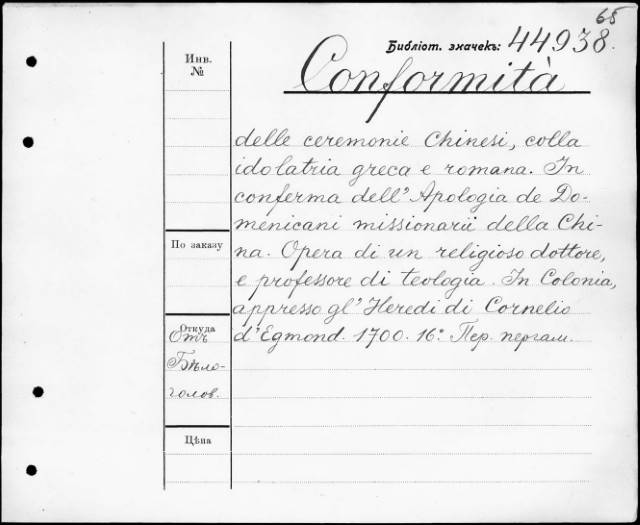 65
Библіот. значекъ: 44938.
Инв.
№
Conformità
delle ceremonie Chinesi, colla
idolatria greca e romana. In
conferma dell' Apologia de Do-
menicani missionarii della Chi-
na. Opera di un religioso dottore,
e professore di teologia. In Colonia,
appresso gl' Heredi di Cornelio
d'Egmond. 1700. 16º. Пер. пергам.
По заказу
Откуда
Отъ
Бѣло-
голов.
Цѣна